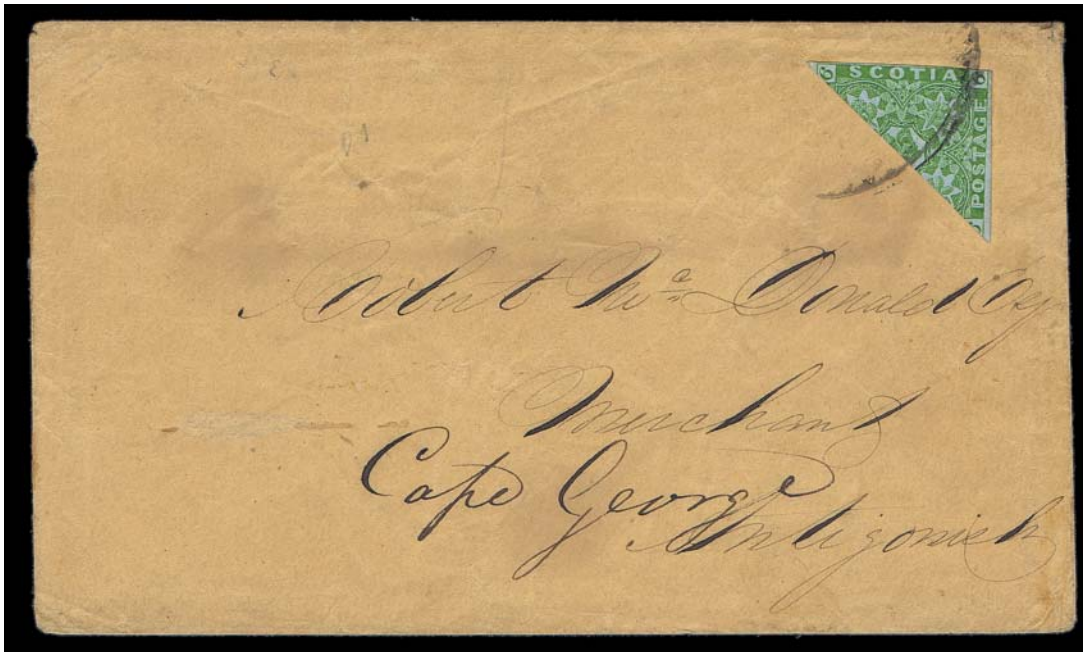 6 SCOTIA 6
POSTAGE
Robert Mc Donald Esq
Merchant
Cape George
Antigonish